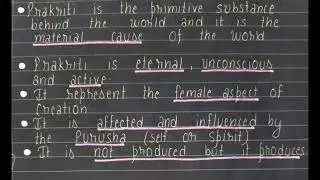 • Prakriti is the primitive substance
behind the world and it is the
material cause of the world
• Prakriti is eternal, unconscious
and active.
• It represent the female aspect of
creation
• It is affected and influenced by
the Purusha (self or spirit)
• It is not produced but it produces